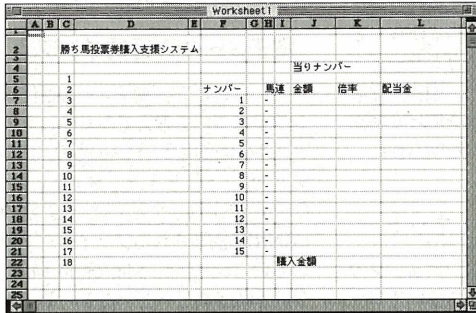 Worksheet1
A B C D E F G H I J K L
1
2 勝ち馬投票券購入支援システム
3
4 当りナンバー
5 1
6 2 ナンバー 馬連 金額 倍率 配当金
7 3 1 -
8 4 2 -
9 5 3 -
10 6 4 -
11 7 5 -
12 8 6 -
13 9 7 -
14 10 8 -
15 11 9 -
16 12 10 -
17 13 11 -
18 14 12 -
19 15 13 -
20 16 14 -
21 17 15 -
22 18 購入金額
23
24
25